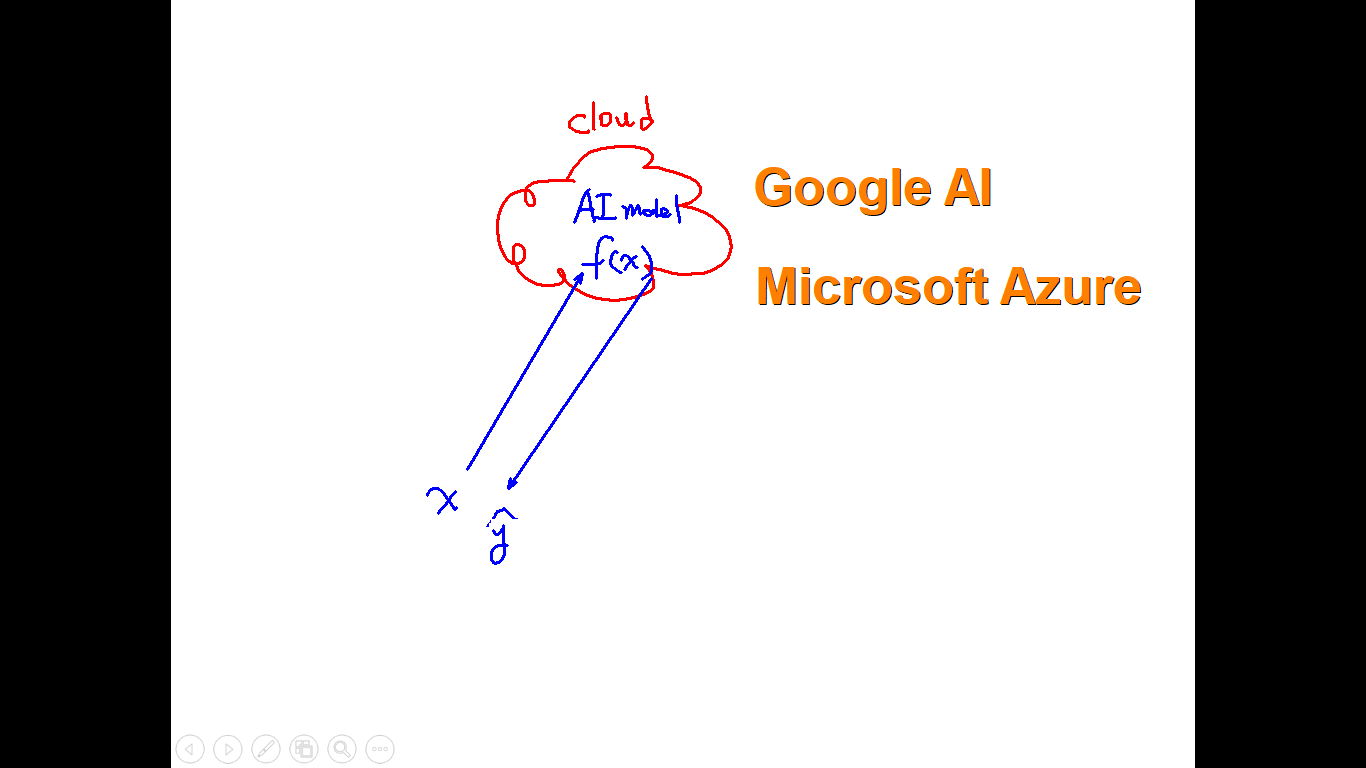 cloud
AI model
f(x)
Google AI
Microsoft Azure
x
ŷ